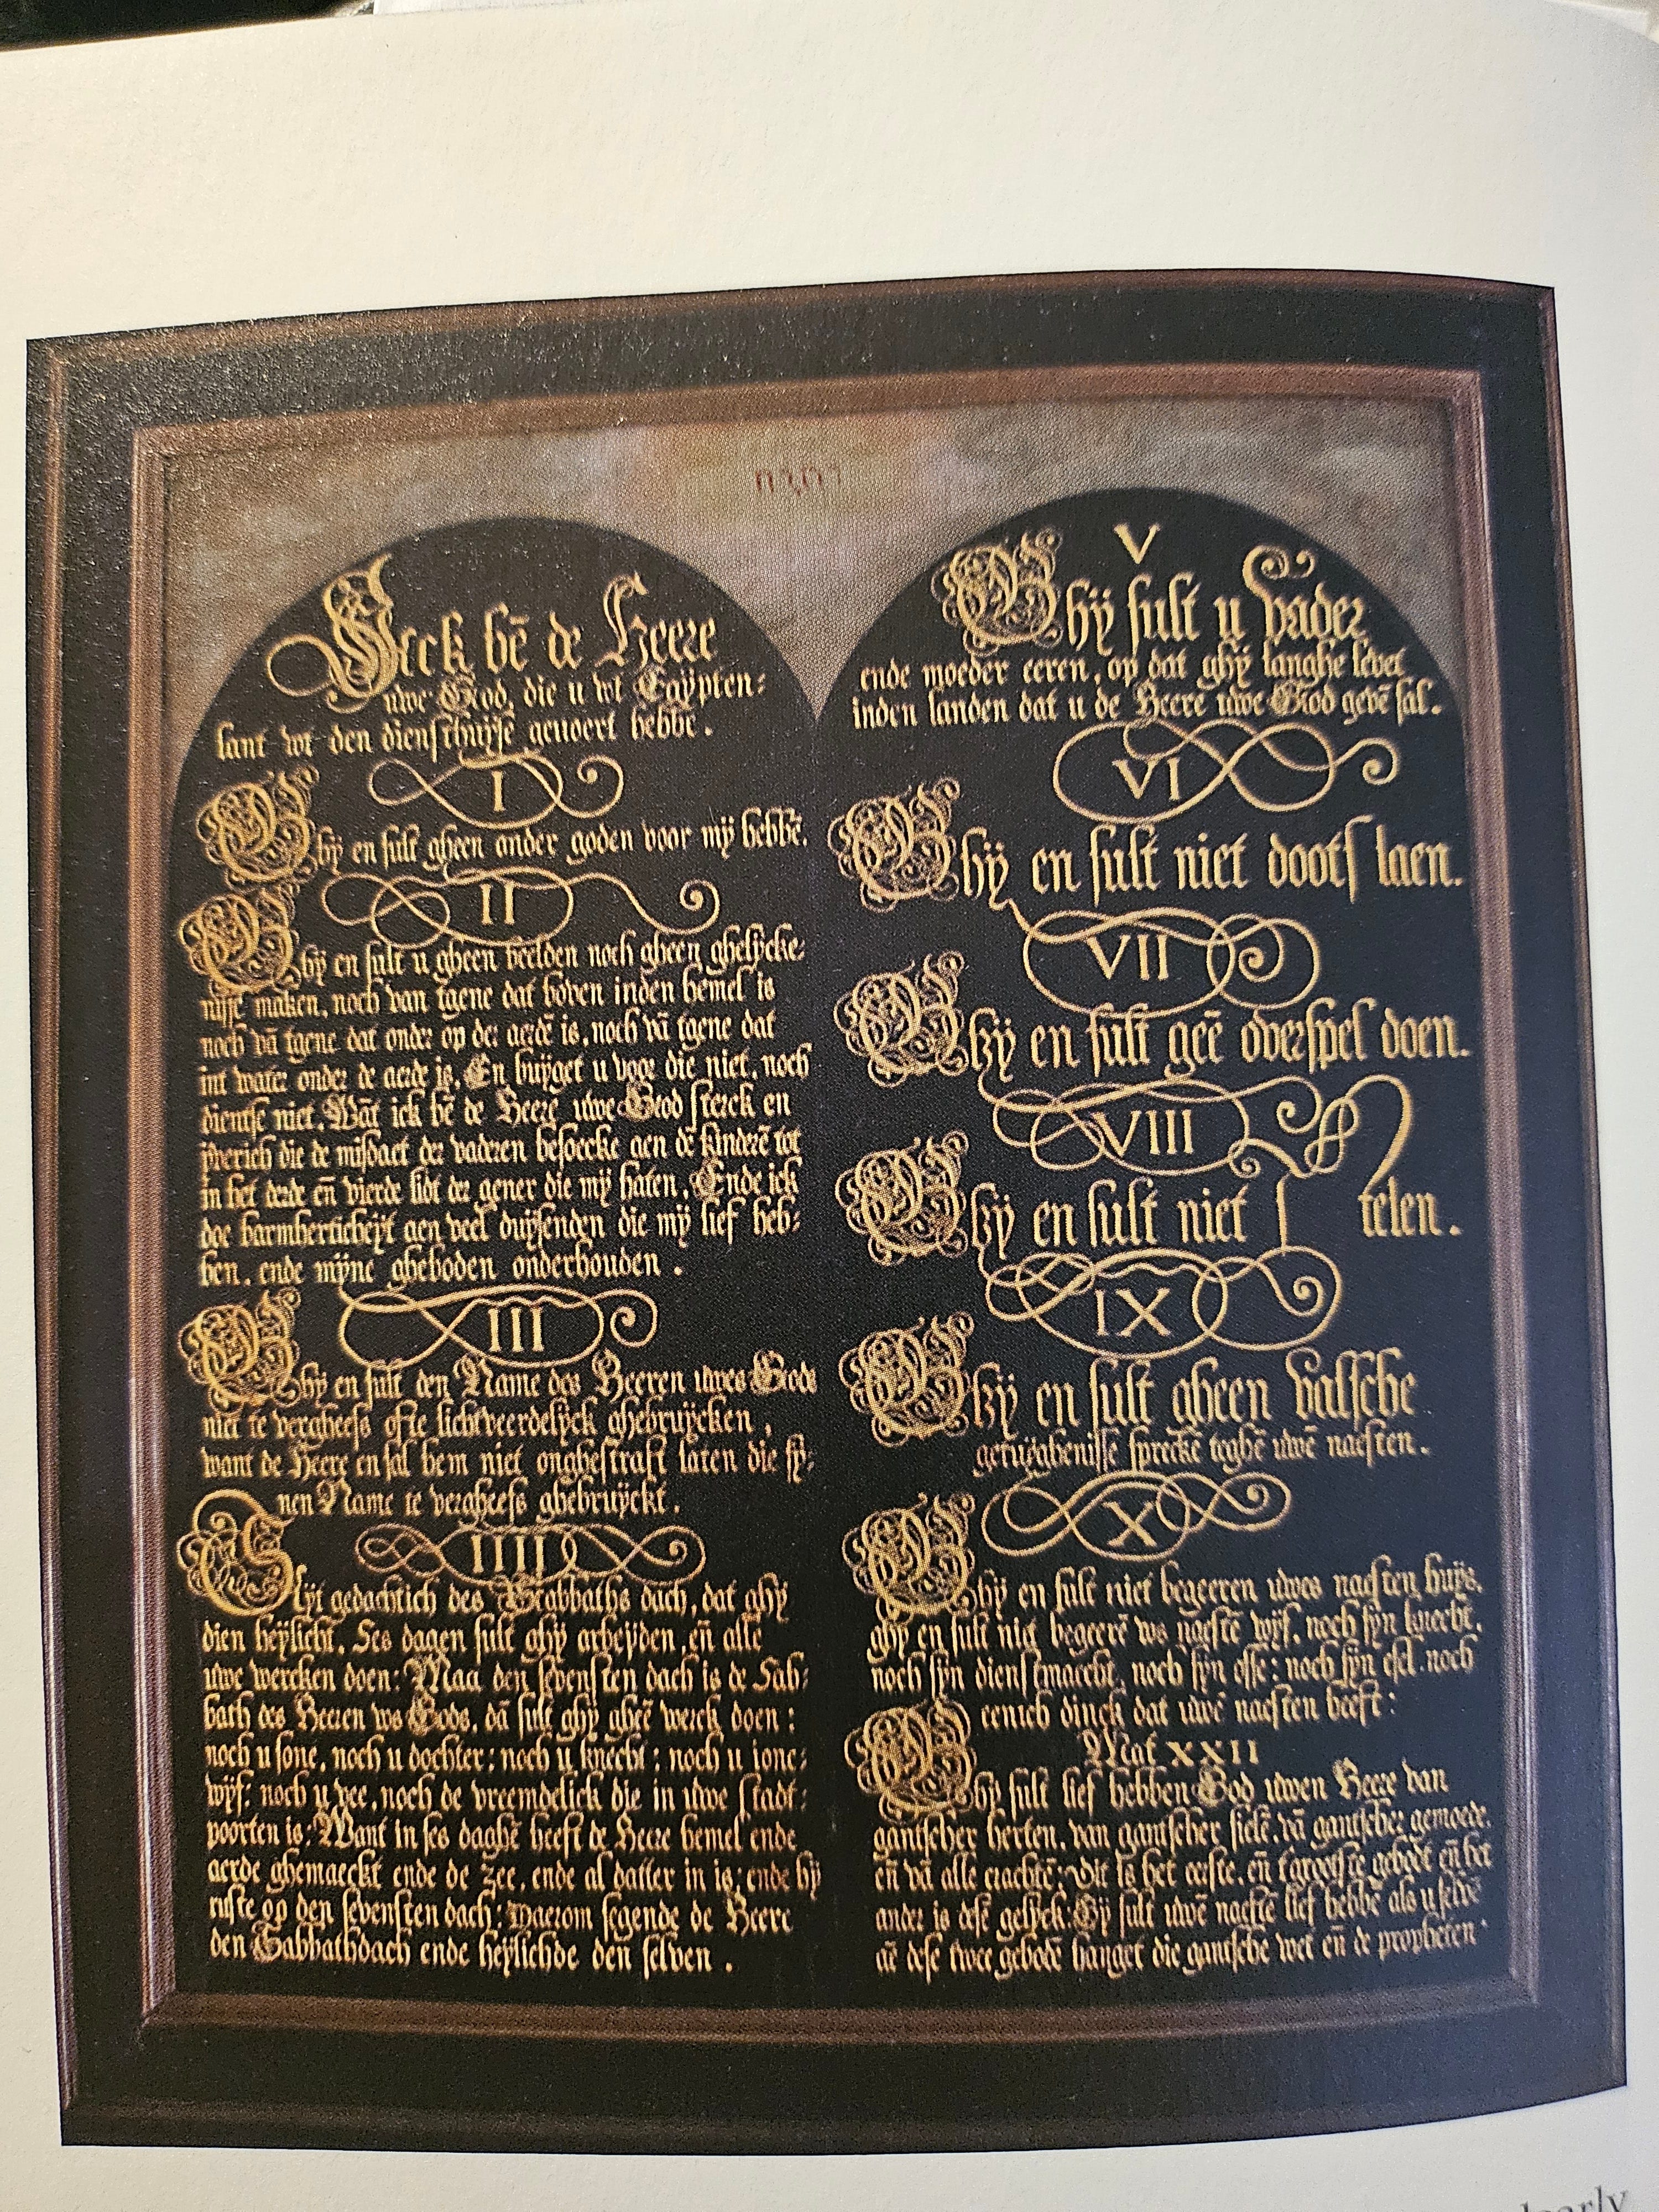 יהוה
Ick bē de Heere
uwe God, die u wt Egÿpten:
lant wt den diensthuÿse gevoert hebbe.
I
Ghÿ en sult gheen ander goden voor mÿ hebbē.
II
Ghÿ en sult u gheen beelden noch gheen ghelÿcke:
nisse maken, noch van tgene dat boven inden hemel is
noch vā tgene dat onder op der aerdē is, noch vā tgene dat
int water onder de aerde is. En buÿget u voor die niet, noch
dientse niet. Wāt ick bē de Heere uwe God sterck en
ÿverich die de misdaet der vaderen besoecke aen de kinderē tot
in het derde eñ vierde lidt der gener die mÿ haten. Ende ick
doe barmherticheÿt aen veel duÿsenden die mÿ lief heb:
ben, ende mÿne gheboden onderhouden.
III
Ghÿ en sult den Name des Heeren uwes Gods
niet te vergheefs ofte lichtveerdelÿck ghebruÿcken,
want de Heere en sal hem niet onghestraft laten die sÿ:
nen Name te vergheefs ghebruÿckt.
IIII
Sÿt gedachtich des Sabbaths dach, dat ghÿ
dien heÿlicht. Ses dagen sult ghÿ arbeÿden, eñ alle
uwe wercken doen: Maer den sevensten dach is de Sab:
bath des Heeren ws Gods, dā sult ghÿ gheē werck doen:
noch u sone, noch u dochter: noch u knecht: noch u ionc:
wÿf: noch u vee, noch de vreemdelick die in uwe stadt:
poorten is: Want in ses daghē heeft de Heere hemel ende
aerde ghemaeckt ende de zee, ende al datter in is: ende hÿ
ruste op den sevensten dach: waerom segende de Heere
den Sabbathdach ende heÿlichde den selven.
V
Ghÿ sult u Vader
ende moeder eeren, op dat ghÿ langhe levet
inden landen dat u de Heere uwe God gevē sal.
VI
Ghÿ en sult niet doots laen.
VII
Ghÿ en sult geē overspel doen.
VIII
Ghÿ en sult niet s telen.
IX
Ghÿ en sult gheen valsche
getuÿghenisse sprekē teghē uwē naesten.
X
Ghÿ en sult niet begeeren uwes naesten huÿs.
ghÿ en sult niet begeerē ws naestē wÿf, noch sÿn knecht,
noch sÿn dienstmaecht, noch sÿn osse: noch sÿn esel. noch
eenich dinck dat uwē naesten heeft:
Mat XXII
Ghÿ sult lief hebben God uwen Heere van
gantscher herten, van gantscher sielē, vā gantscher gemoede.
eñ vā alle crachtē: dit is het eerste, eñ tgrootste gebodt eñ het
ander is dese gelÿck: Ghÿ sult uwē naestē lief hebbē als u selvē
aē dese twee gebodē hanget die gantsche wet eñ de propheten